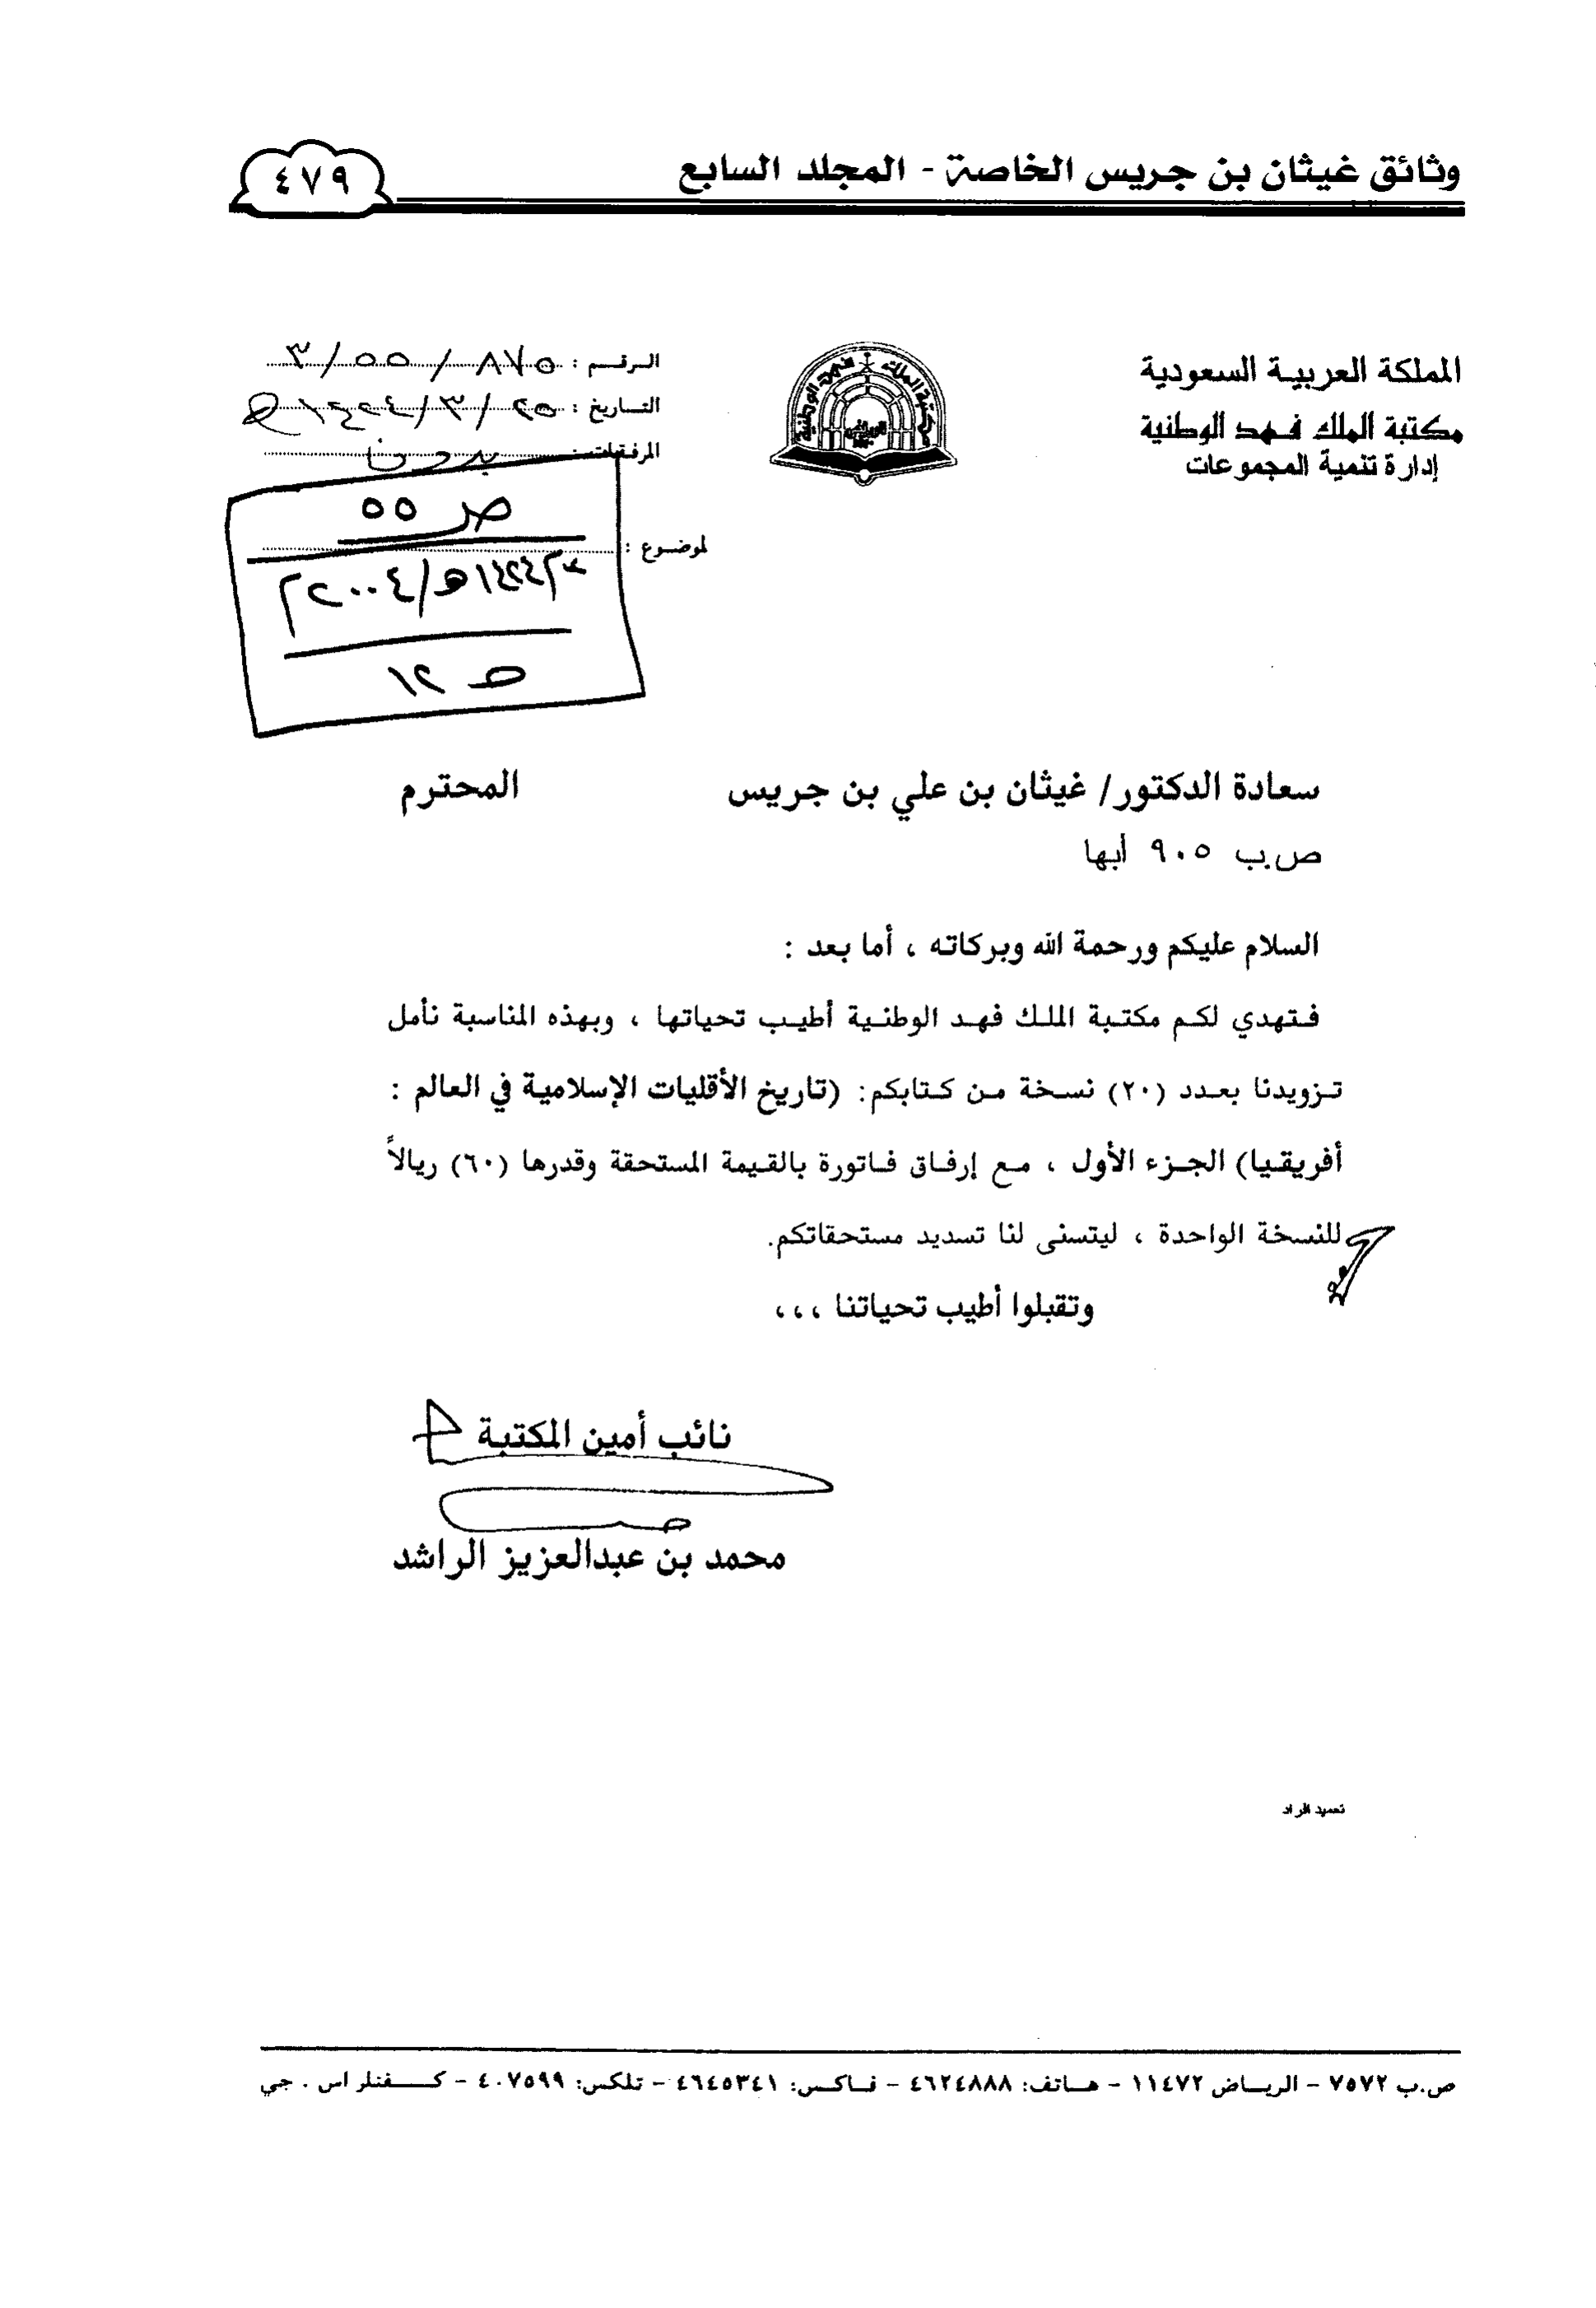 وثائق غيثان بن جريس الخاصة - المجلد السابع
٤٧٩
المملكة العربية السعودية
مكتبة الملك فهد الوطنية
إدارة تنمية المجموعات
مكتبة الملك فهد الوطنية
الرياض
الرقم : ٨٧٥ / ٥٥ / ٣
التاريخ : ٢٥ / ٣ / ١٤٢٤ هـ
المرفقات : بدون
لموضوع :
ص ٥٥
١٤٢٤هـ/٢٠٠٤م
سعادة الدكتور/ غيثان بن علي بن جريس المحترم
ص.ب ٩٠٥ أبها
السلام عليكم ورحمة الله وبركاته ، أما بعد :
فتهدي لكم مكتبة الملك فهد الوطنية أطيب تحياتها ، وبهذه المناسبة نأمل
تزويدنا بعدد (٢٠) نسخة من كتابكم: (تاريخ الأقليات الإسلامية في العالم :
أفريقيا) الجزء الأول ، مع إرفاق فاتورة بالقيمة المستحقة وقدرها (٦٠) ريالاً
للنسخة الواحدة ، ليتسنى لنا تسديد مستحقاتكم.
وتقبلوا أطيب تحياتنا ،،،
نائب أمين المكتبة
محمد بن عبدالعزيز الراشد
تعميد افراد
ص.ب ٧٥٧٢ - الرياض ١١٤٧٢ - هاتف: ٤٦٢٤٨٨٨ - فاكس: ٤٦٤٥٣٤١ - تلكس: ٤٠٧٥٩٩ - كفنلر اس . جي